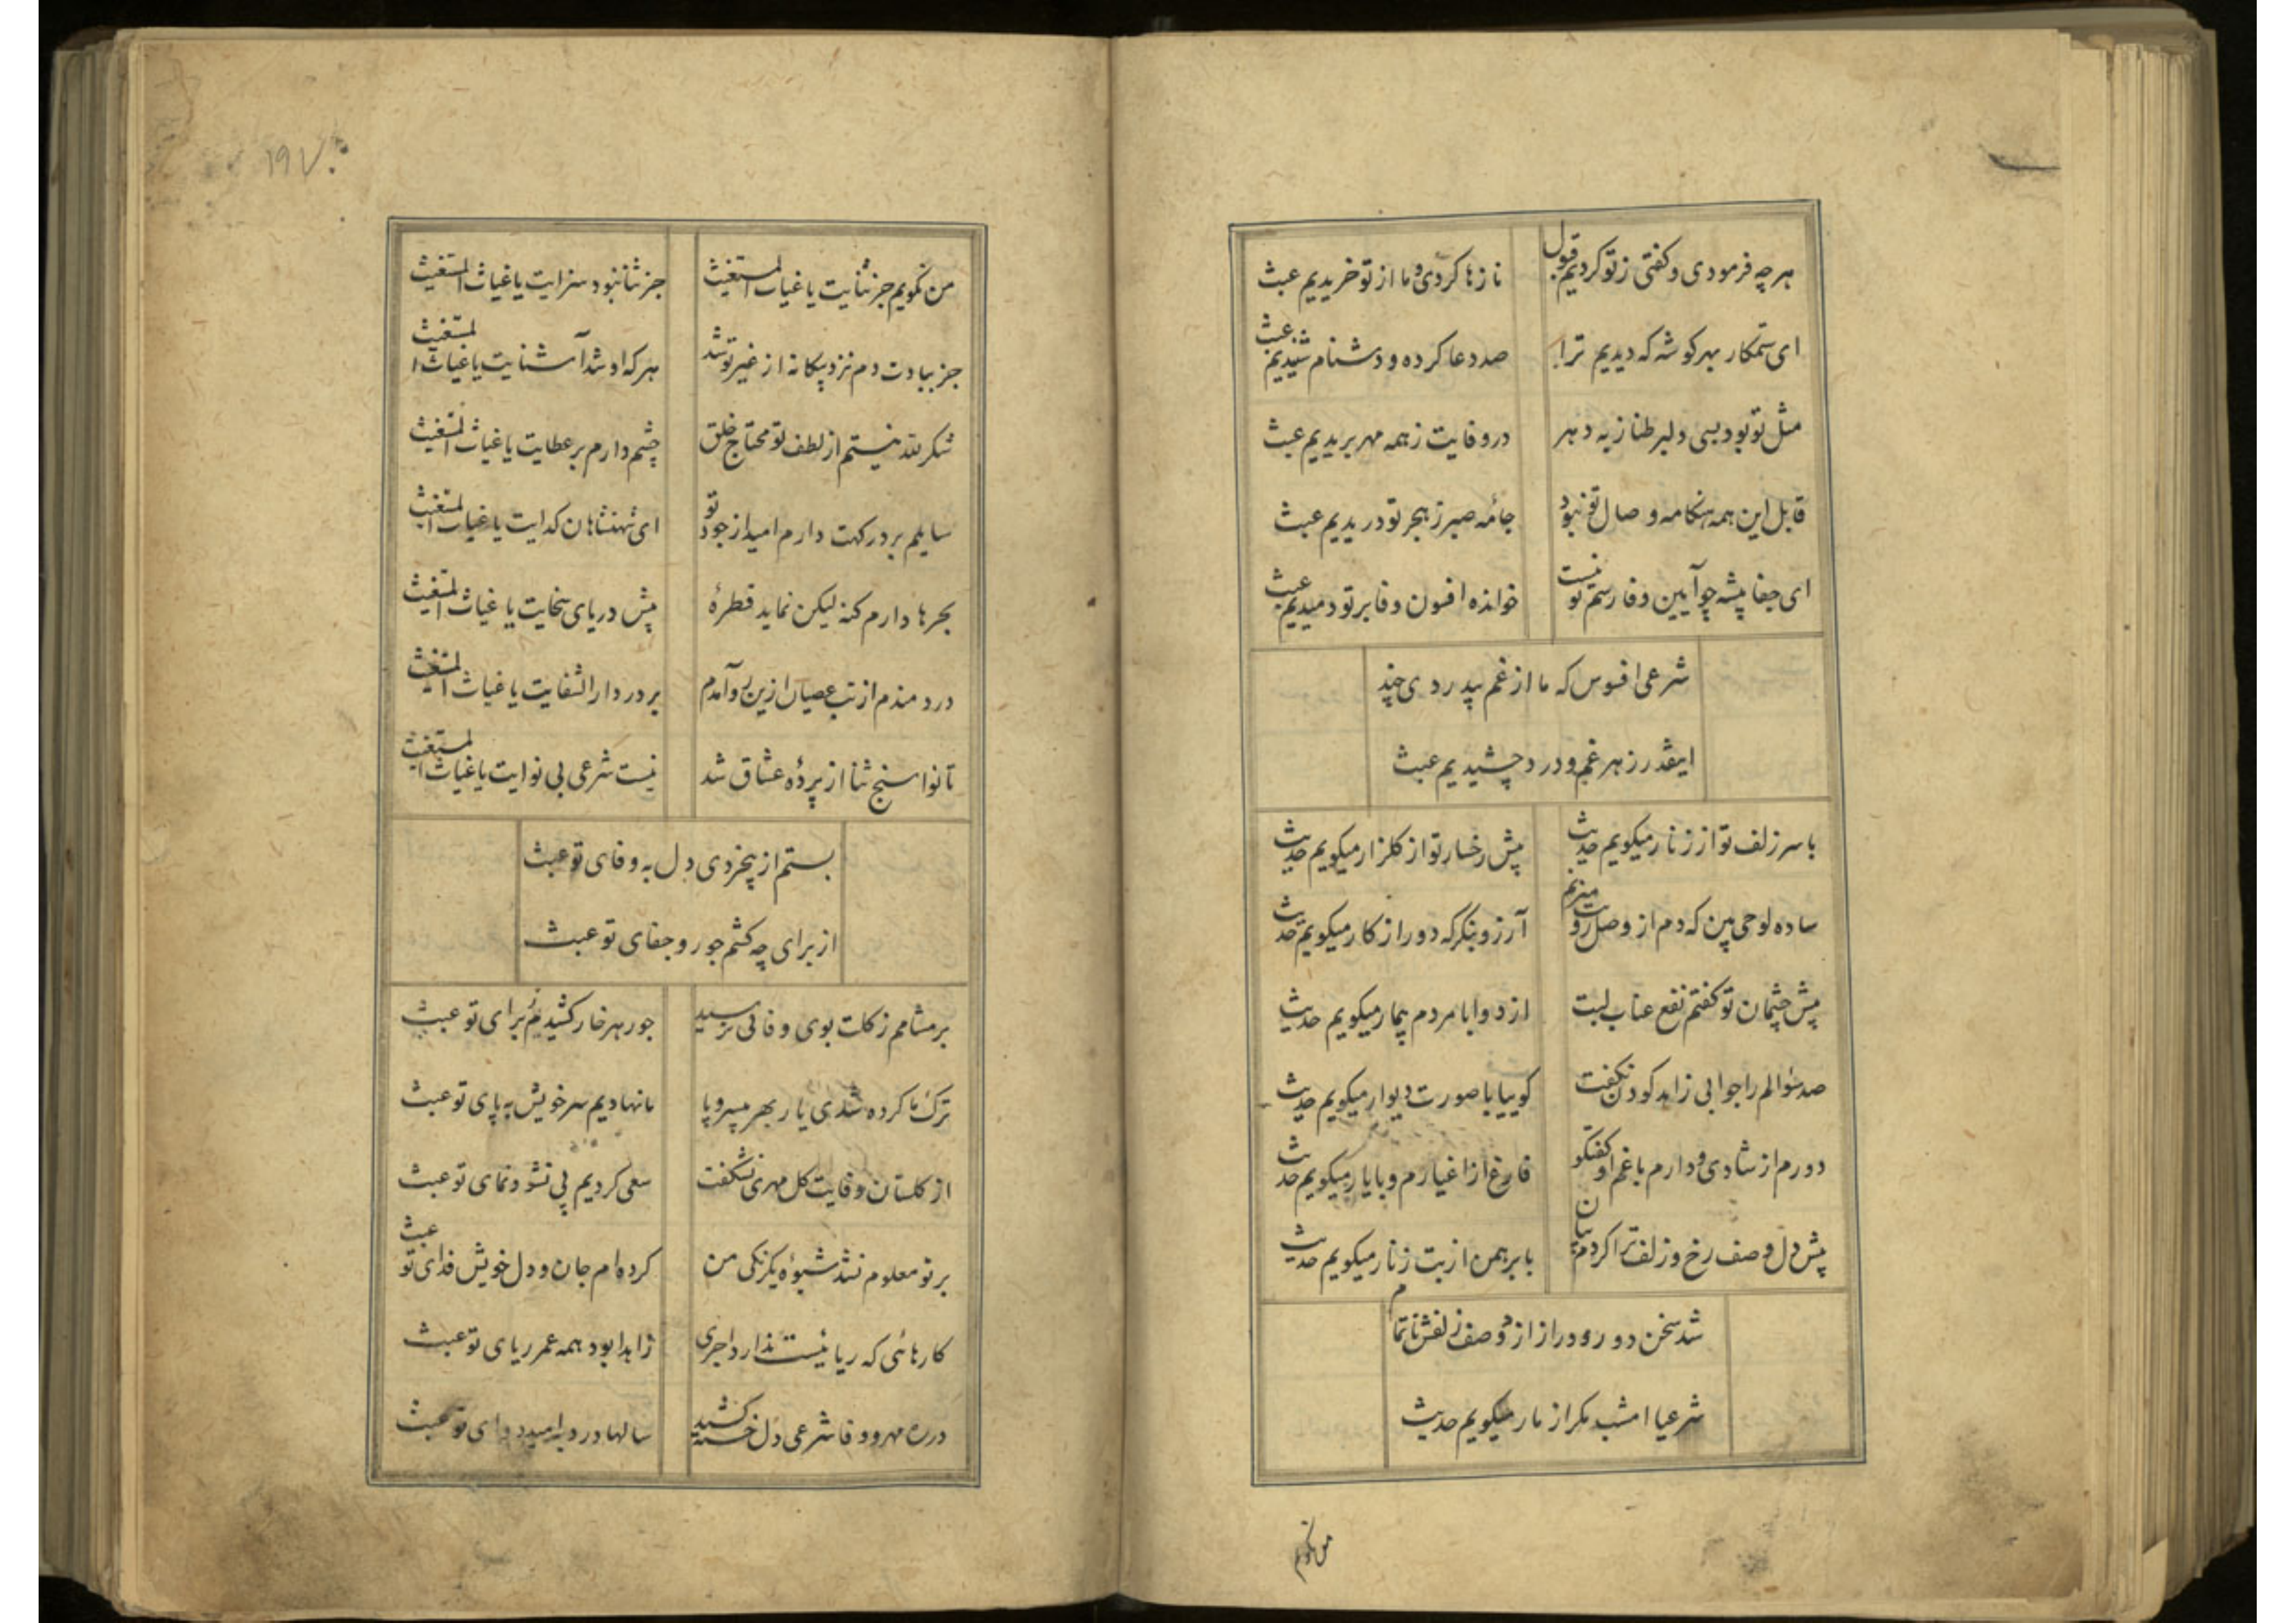 هر چه فرمودی و گفتی ز تو کردیم قبول
نازها کردی و ما از تو خریدیم عبث
ای ستمکار بهر گوشه که دیدیم ترا
صد دعا کرده و دشنام شنیدیم عبث
مثل تو بود بسی دلبر طناز به دهر
در وفایت ز همه مهر بریدیم عبث
قابل این همه هنگامه وصال تو نبود
جامهٔ صبر ز هجر تو دریدیم عبث
ای جفا پیشه چو آیین وفا رسم تو نیست
خوانده افسون وفا بر تو دمیدیم عبث
شرعی افسوس که ما از غم بیدردی چند
اینقدر زهر غم و درد چشیدیم عبث
با سر زلف تو از زنار میگویم حدیث
پیش رخسار تو از گلزار میگویم حدیث
ساده لوحی بین که دم از وصل رویت میزنم
آرزو بنگر که دور از کار میگویم حدیث
پیش چشمان تو گفتم نفع عناب لبت
از دوا با مردم بیمار میگویم حدیث
صد سؤالم را جوابی زاهد کودن نگفت
گوییا با صورت دیوار میگویم حدیث
دورم از شادی و دارم با غم او گفتگو
فارغ از اغیارم و با یار میگویم حدیث
پیش دل وصف رخ و زلف ترا کردم بیان
با برهمن از بت و زنار میگویم حدیث
شد سخن دور و دراز از وصف زلفش ناتمام
شرعیا امشب مگر از مار میگویم حدیث
من نگویم
۱۹۷
من نگویم جز ثنایت یا غیاث المستغیث
جز ثنا نبود سزایت یا غیاث المستغیث
جز بیادت دم نزد بیگانه از غیر تو شد
هر که او شد آشنایت یا غیاث المستغیث
شکر لله نیستم از لطف تو محتاج خلق
چشم دارم بر عطایت یا غیاث المستغیث
سایلم بر درگهت دارم امید از جود تو
ای شهنشاهان گدایت یا غیاث المستغیث
بحرها دارم گنه لیکن نماید قطرهٔ
پیش دریای سخایت یا غیاث المستغیث
دردمندم از تب عصیان ازین رو آمدم
بر در دار الشفایت یا غیاث المستغیث
تا نوا سنج ثنا از پردهٔ عشاق شد
نیست شرعی بی نوایت یا غیاث المستغیث
بستم از بیخردی دل به وفای تو عبث
از برای چه کشم جور و جفای تو عبث
بر مشامم ز گلت بوی وفائی نرسید
جور هر خار کشیدیم برای تو عبث
ترک ما کرده شدی یار بهر بی سر و پا
ما نهادیم سر خویش به پای تو عبث
از گلستان وفایت گل مهری نشکفت
سعی کردیم پی نشو و نمای تو عبث
بر تو معلوم نشد شیوهٔ یکرنگی من
کرده‌ام جان و دل خویش فدای تو عبث
کارهائی که ریائیست ندارد اجری
زاهدا بود همه عمر ریای تو عبث
در ره مهر و وفا شرعی دل خسته کشید
سالها درد به امید دوای تو عبث